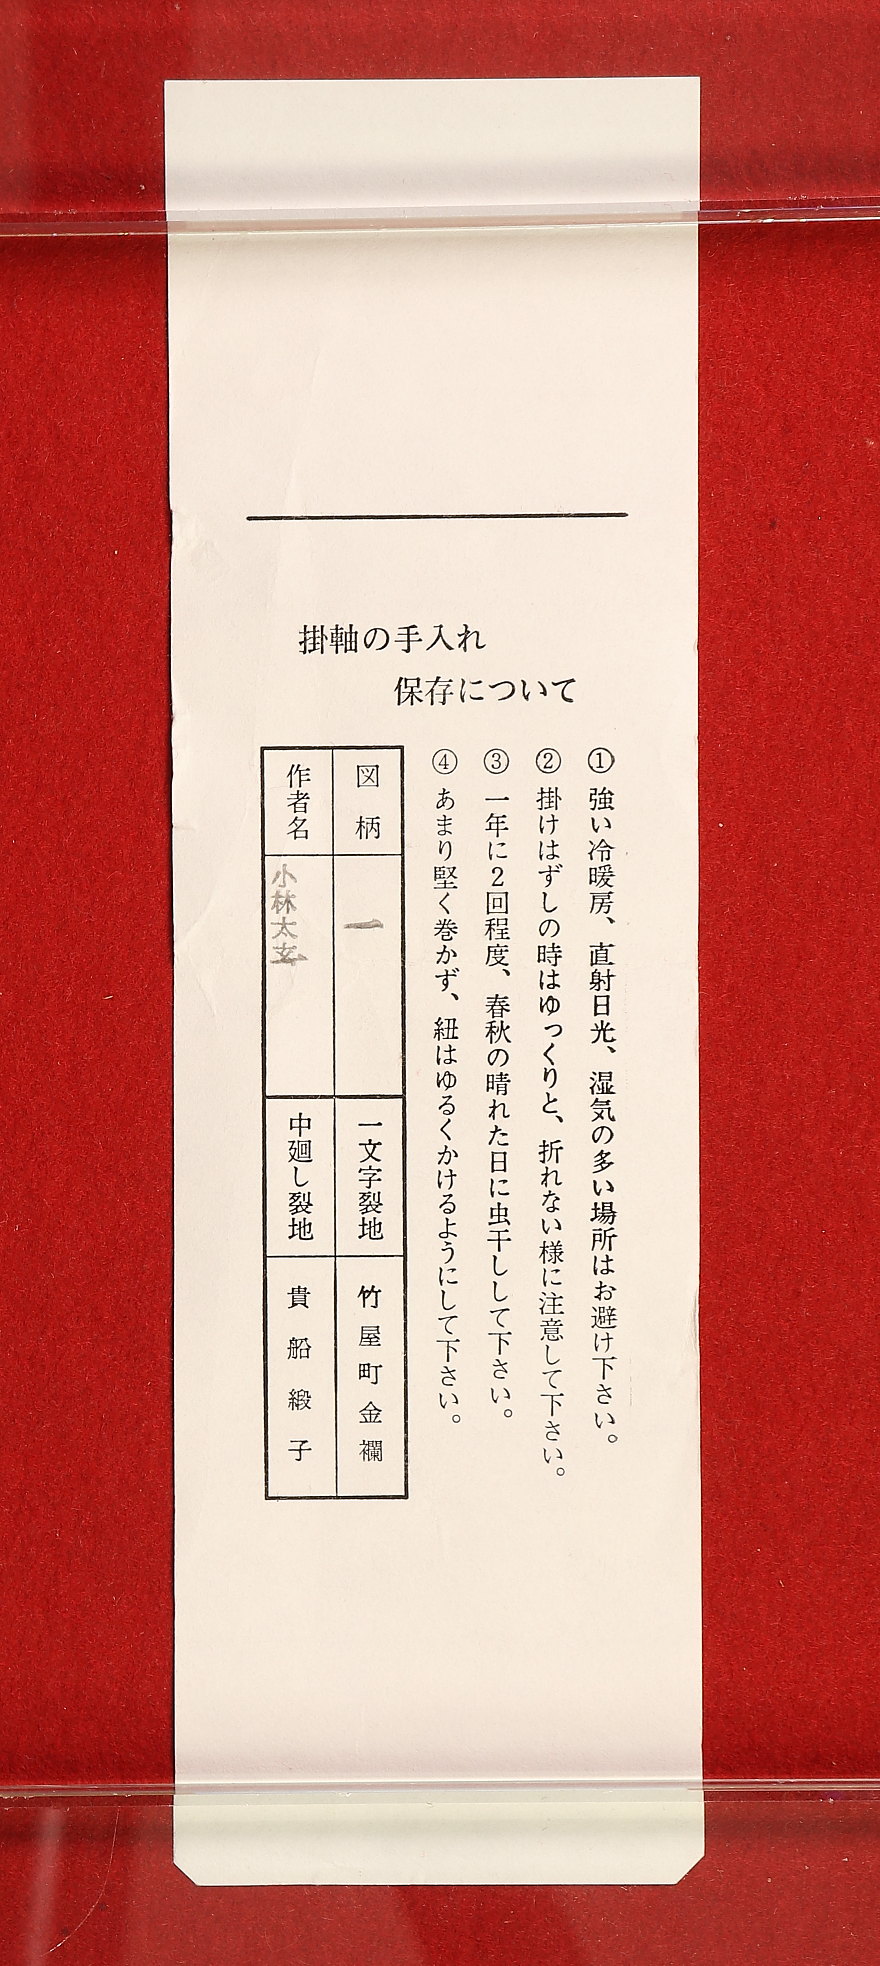 掛軸の手入れ
保存について
①強い冷暖房、直射日光、湿気の多い場所はお避け下さい。
②掛けはずしの時はゆっくりと、折れない様に注意して下さい。
③一年に2回程度、春秋の晴れた日に虫干しして下さい。
④あまり堅く巻かず、紐はゆるくかけるようにして下さい。
図柄 一 一文字裂地 竹屋町金襴
作者名 小林太玄 中廻し裂地 貴船緞子